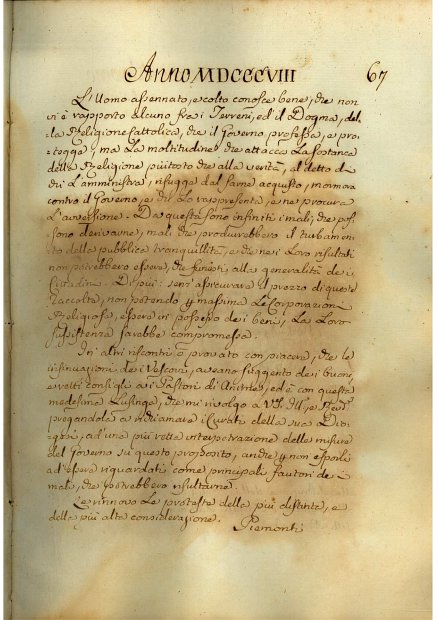 Anno MDCCCVIII 67
L'Uomo assennato, e colto conosce bene, che non
vi è rapporto alcuno fra i Terreni, ed il Dogma, del-
-la Religione Cattolica, che il Governo professa, e pro-
-tegge, ma la moltitudine che attacca la sostanza
della Religione piutosto che alla verità, al detto di
chi l'amministra, rifugge dal farne acquisto, mormora
contro il Governo, e chi lo rappresenta, e ne procura
l'avversione. Da questa sono infiniti i mali, che pos-
sono derivarne, mali che produrrebbero il turbamen-
to della pubblica tranquillità, e che nei loro risultati
non potrebbero essere, che funesti alla generalità dei
Cittadini. Di più: sens' assicurare il prezzo di queste
Raccolta, non potendo massima le Corporazioni
Religiose, essere in possesso dei beni, la loro
sussistenza sarebbe compromessa.
In altri riscontri ò provato con piacere, che le
insinuazioni dei Vescovi, aveano suggerito dei buoni,
e retti consigli ai Pastori di Anime, ed è con questa
medesima lusinga, che mi rivolgo a
pregandola a richiamare i Curati della sua Dio-
cesi, ad una più retta interpetrazione delle misure
del Governo su questo proposito, anche non esporli
ad essere riguardati come principali fautori dei
mali, che potrebbero risultarne.
Le rinnovo le proteste della più distinta, e
della più alta considerazione. Piemonti